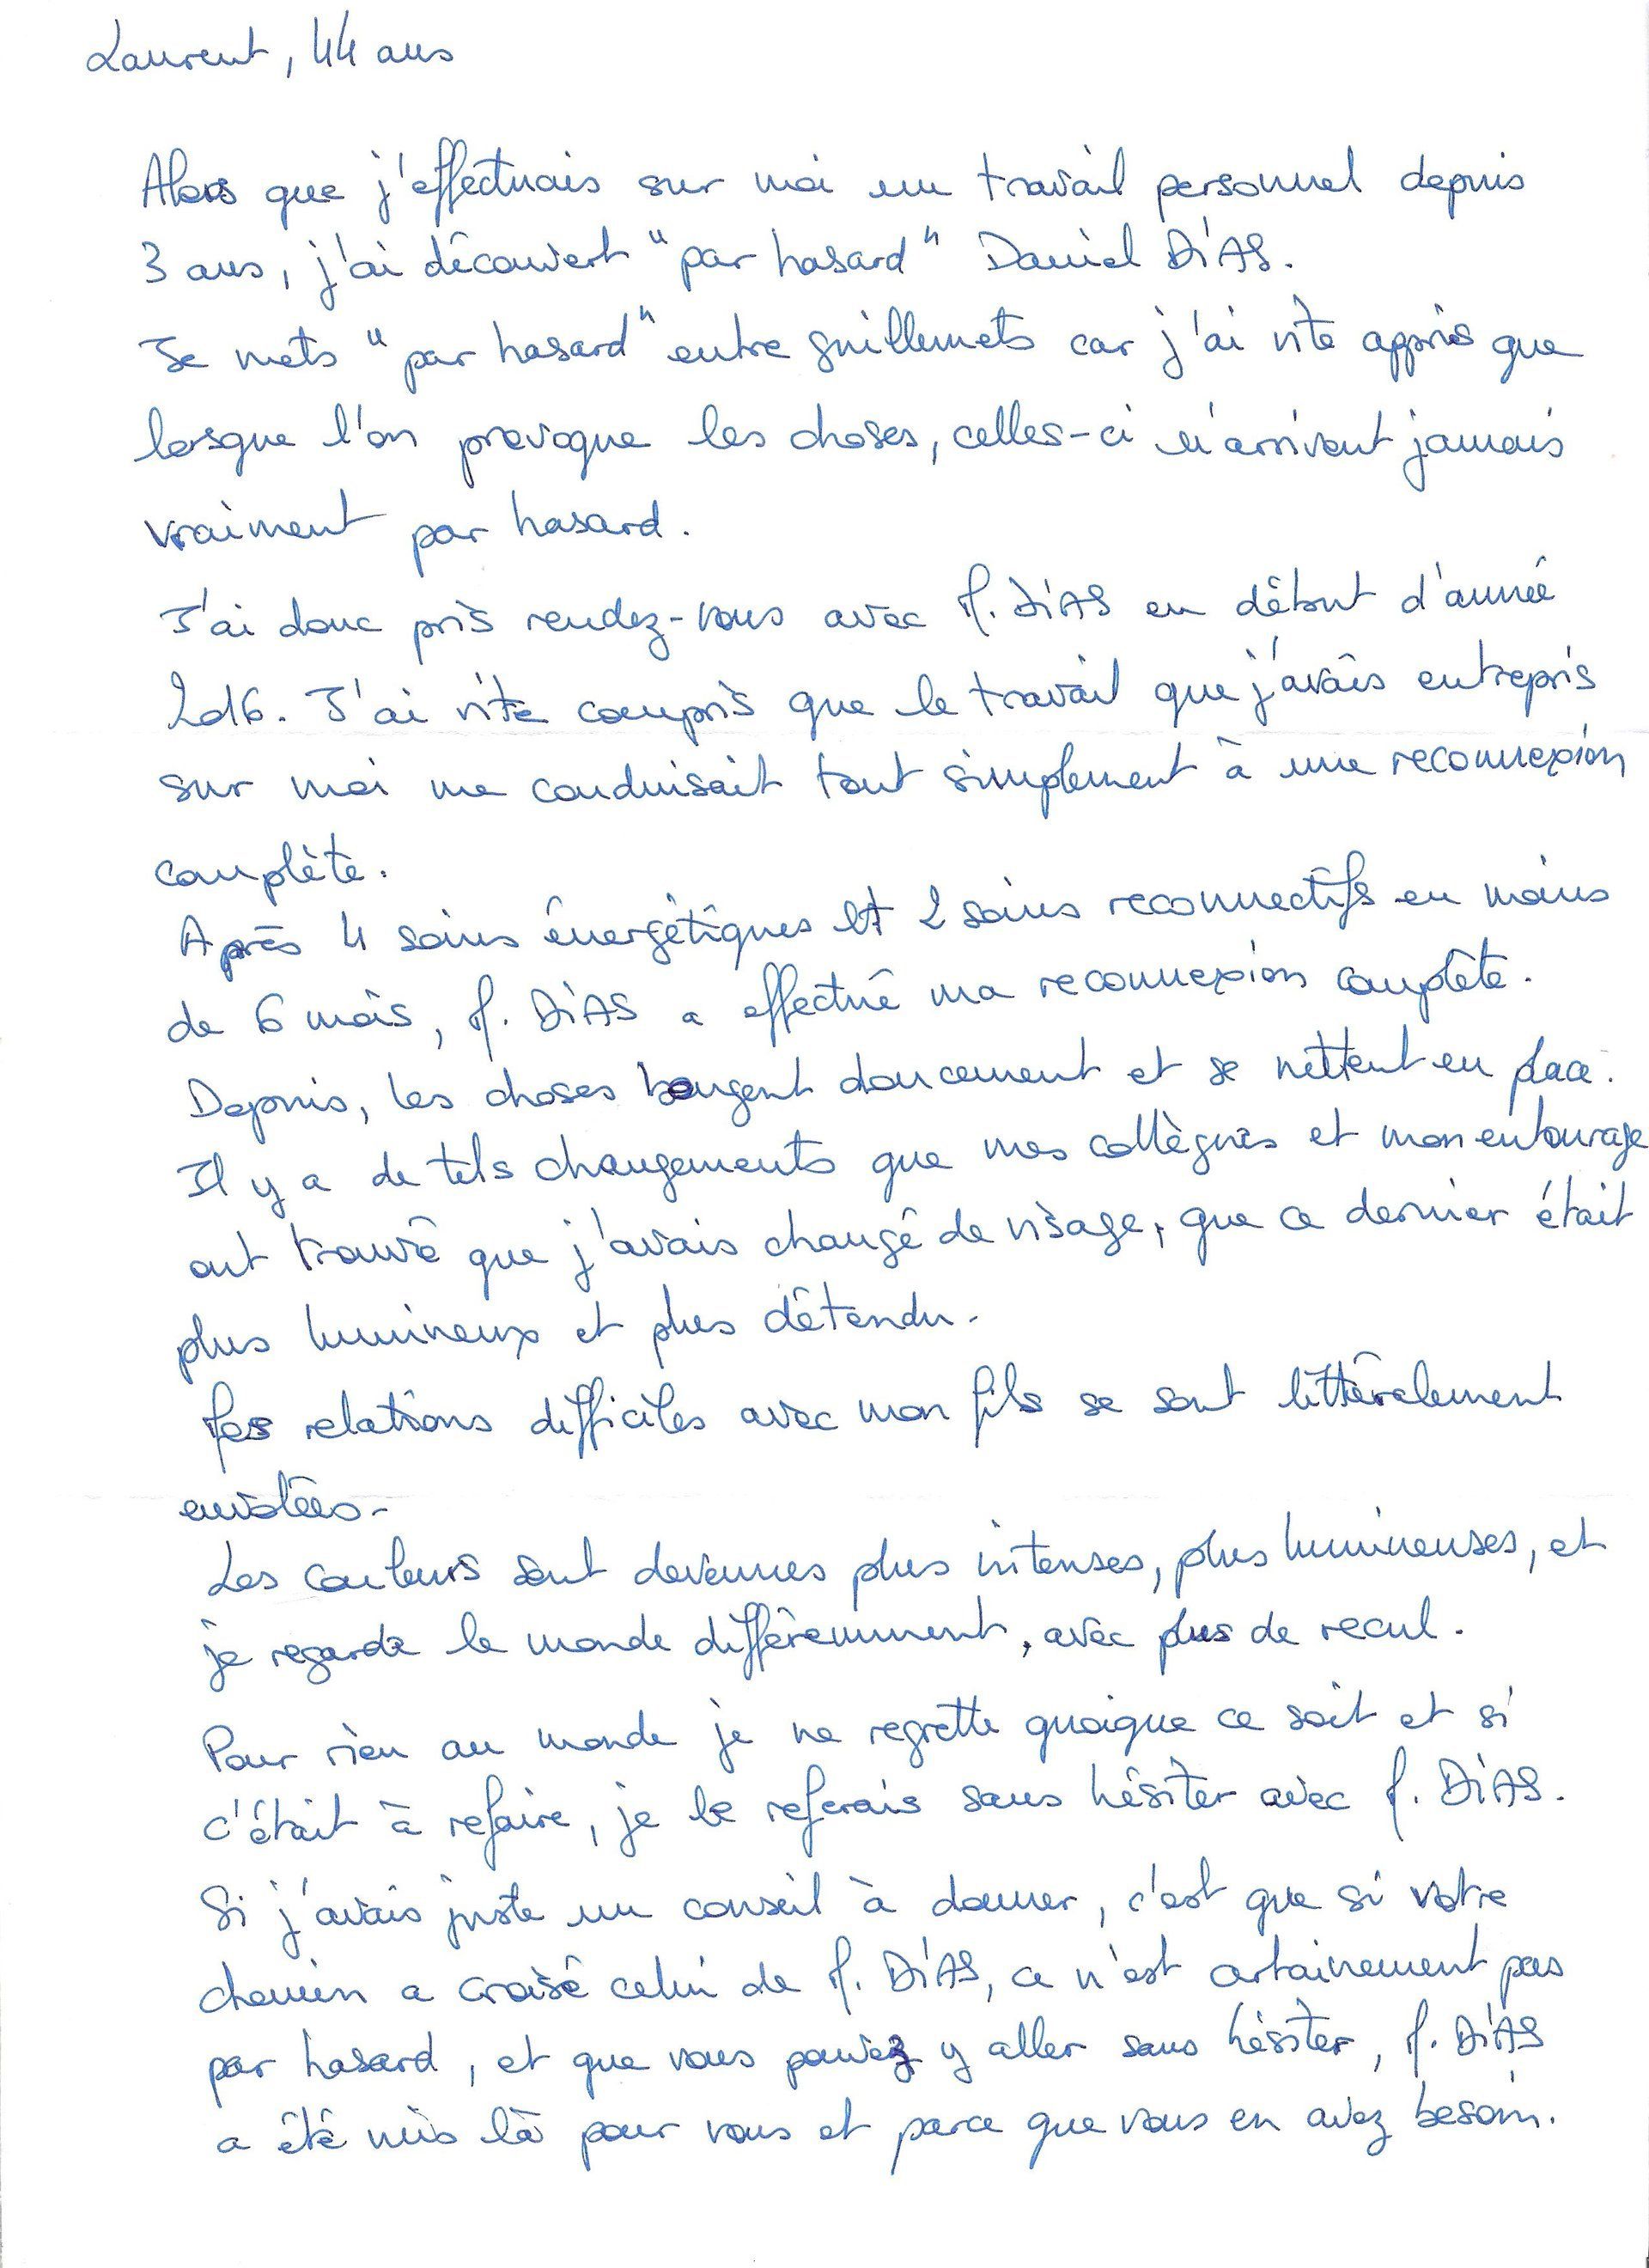 Laurent, 44 ans
Alors que j'effectuais sur moi un travail personnel depuis
3 ans, j'ai découvert "par hasard" Daniel DIAS.
Je mets "par hasard" entre guillemets car j'ai vite appris que
lorsque l'on provoque les choses, celles-ci n'arrivent jamais
vraiment par hasard.
J'ai donc pris rendez-vous avec M. DIAS en début d'année
2016. J'ai vite compris que le travail que j'avais entrepris
sur moi me conduisait tout simplement à une reconnexion
complète.
Après 4 soins énergétiques et 2 soins reconnectifs en moins
de 6 mois, M. DIAS a effectué ma reconnexion complète.
Depuis, les choses bougent doucement et se mettent en place.
Il y a de tels changements que mes collègues et mon entourage
ont trouvé que j'avais changé de visage, que ce dernier était
plus lumineux et plus détendu.
Mes relations difficiles avec mon fils se sont littéralement
envolées.
Les couleurs sont devenues plus intenses, plus lumineuses, et
je regarde le monde différemment, avec plus de recul.
Pour rien au monde je ne regrette quoique ce soit et si
c'était à refaire, je le referais sans hésiter avec M. DIAS.
Si j'avais juste un conseil à donner, c'est que si votre
chemin a croisé celui de M. DIAS, ce n'est certainement pas
par hasard, et que vous pouvez y aller sans hésiter, M. DIAS
a été mis là pour vous et parce que vous en avez besoin.